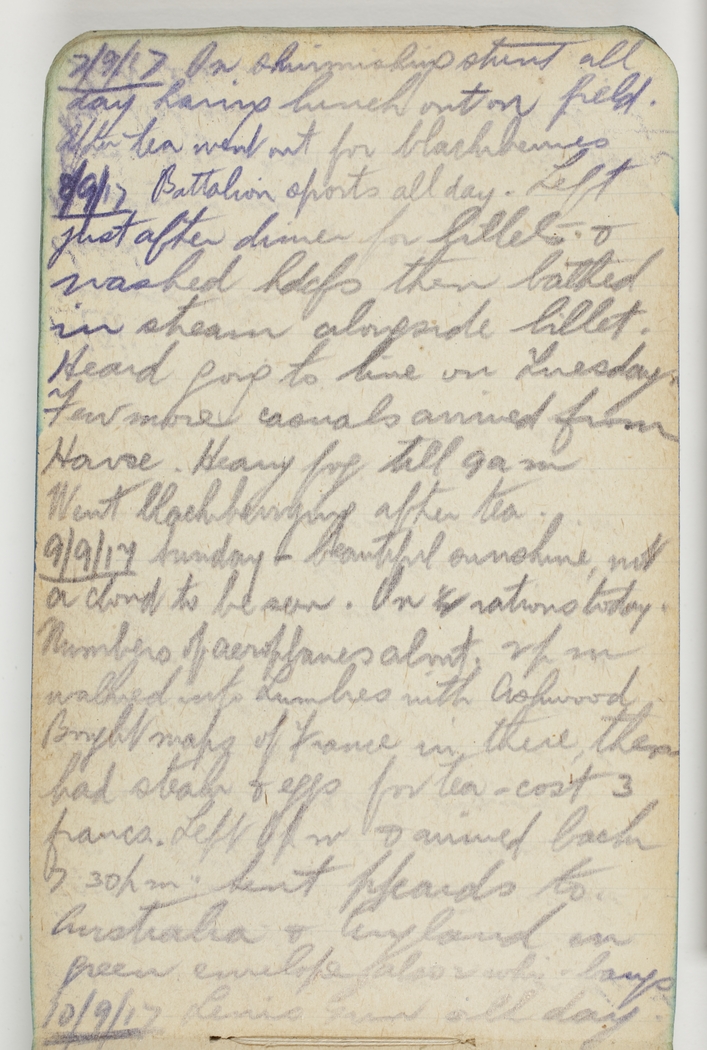 7/9/17 On skirmishing stunt all
day having lunch out on field.
After tea went out for blackberries
8/9/17 Battalion sports all day. Left
just after dinner for billets &
washed hdcfs then bathed
in stream alongside billet.
Heard going to line on Tuesday.
Few more casuals arrived from
Havre. Heavy fog till 9 a m
Went blackberrying after tea.
9/9/17 Sunday - beautiful sunshine, not
a cloud to be seen. On rations today.
Numbers of aeroplanes about. 2 p m
walked into Lumbres with Ashwood
Bought maps of France in there, then
had steak & eggs for tea - cost 3
francs. Left p m & arrived back
7 30 p m. Sent p/cards to
Australia & England in
green envelope also
10/9/17 Lewis Gun all day.